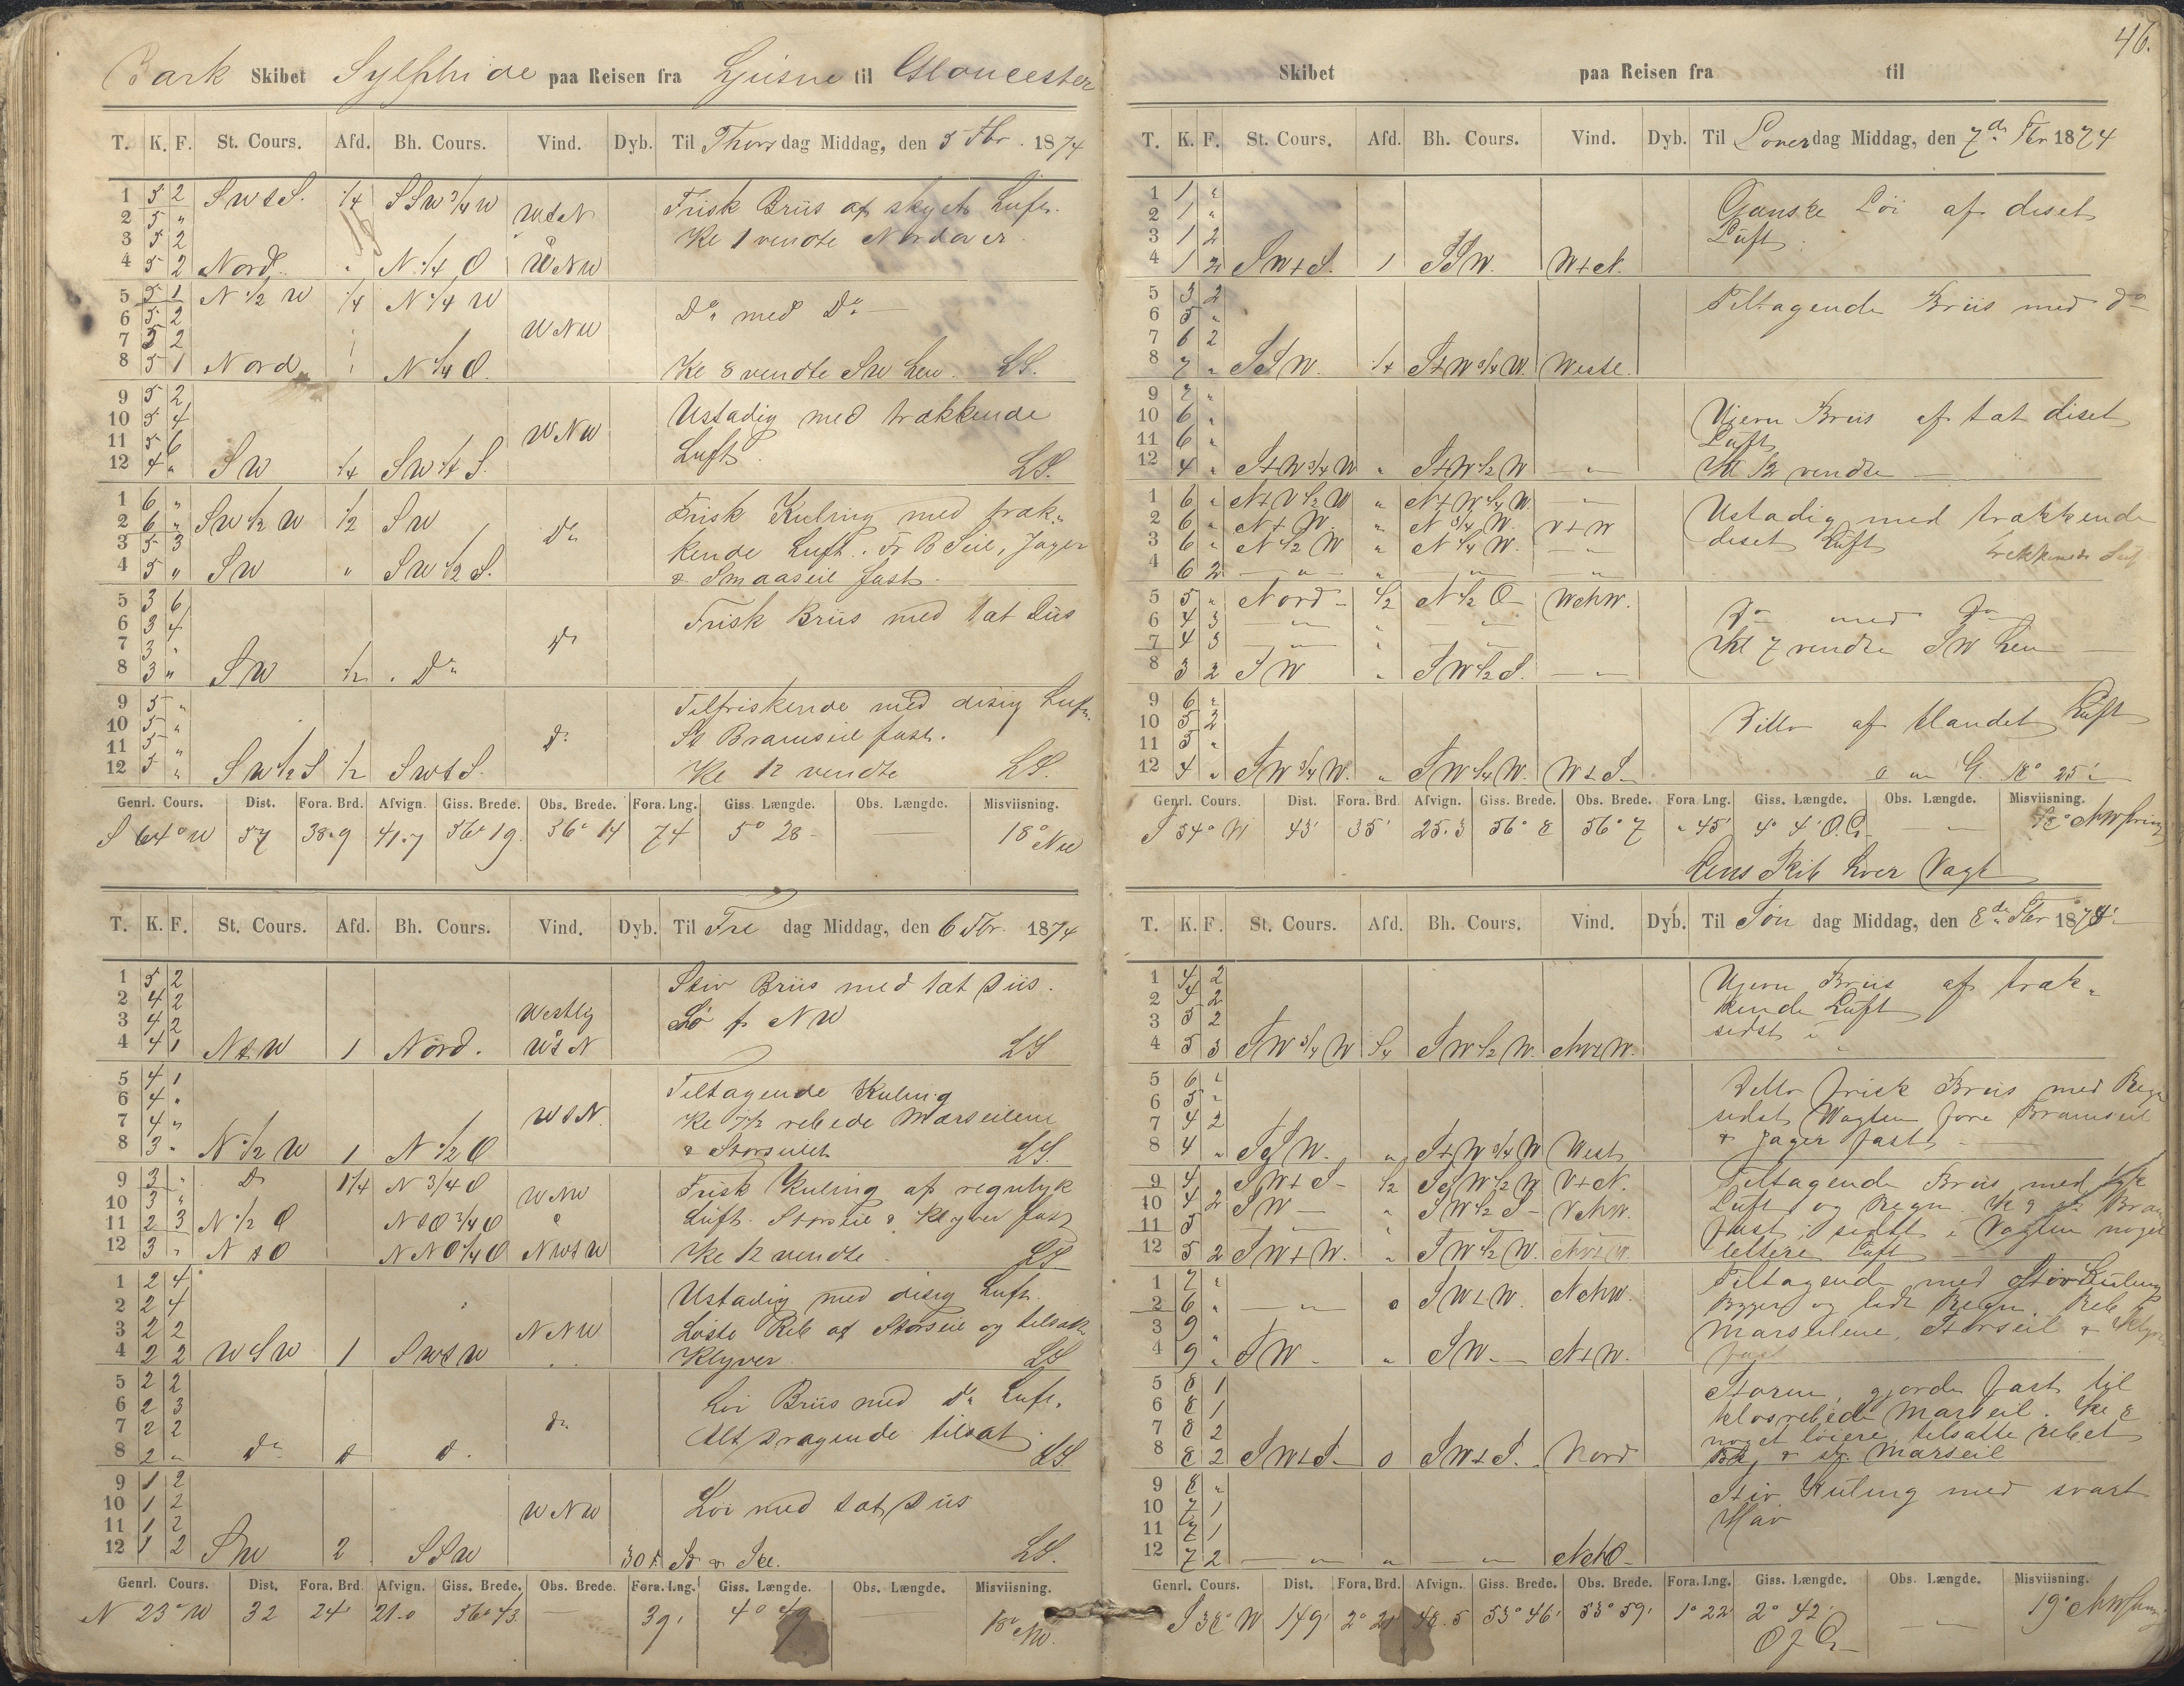 Bark Skibet Sylphide paa Reisen fra Ljusne til Gloucester
T. K. F. St. Cours. Afd. Bh. Cours. Vind. Dyb. Til Thorsdag Middag, den 5 Fbr. 1874
1 5 2 SWtS. 1/4 SSW 3/4 W WtN Frisk Briis af skyet Luft.
2 5 " Kl 1 vendte Nordover
3 5 2
4 5 2 Nord " N 1/4 O WNW
5 5 1 N 1/2 W 1/4 N 1/4 W Do med Do
6 5 2 WNW
7 5 2
8 5 1 Nord N 1/4 O. Kl 8 vendte SW hen. LS.
9 5 2 Ustadig med trækkende
10 5 4 WNW Luft.
11 5 6
12 4 " SW 1/4 SW 1/4 S. LS.
1 6 " Frisk Kuling med træk-
2 6 " SW 1/2 W 1/2 SW Do kende Luft. Fr B Seil, Jager
3 5 3
4 5 " SW " SW 1/2 S. & Smaaseil fast.
5 3 6 Frisk Briis med tat Diis
6 3 4 Do
7 3 "
8 3 " SW 1/2 Do
9 5 " Tilfriskende med disig Luft.
10 5 " Do St Bramseil fast.
11 5 "
12 5 " SW 1/2 S 1/2 SWtS. Kl 12 vendte LS.
Genrl. Cours. Dist. Fora. Brd. Afvign. Giss. Brede. Obs. Brede. Fora. Lng. Giss. Længde. Obs. Længde. Misviisning.
S 64° W 57 38.9 41.7 56° 19. 56° 14 74 5° 28 18° NW
T. K. F. St. Cours. Afd. Bh. Cours. Vind. Dyb. Til Fre dag Middag, den 6 Fbr. 1874
1 5 2 Stiv Briis med tat Diis.
2 4 2 Westlig
3 4 2
4 4 1 NtW 1 Nord. WtN LS
5 4 1 Tiltagende Kuling
6 4 " WtN. Kl 7 1/2 rebede Marseilene
7 4 "
8 3 " N 1/2 W 1 N 1/2 O & Storseilet LS.
9 3 " Do 1 1/4 N 3/4 O WNW Frisk Kuling af regntyk
10 3 " Luft. Storseil & Klyver fast
11 2 3 N 1/2 O NtO 3/4 O
12 3 " NtO NNO 1/4 O NWtW Kl 12 vendte. LS
1 2 4 Ustadig med disig Luft.
2 2 4 NNW Løste Reb af Storseil og tilsatte
3 2 2
4 2 2 WSW 1 SWtW Klyver. LS
5 2 2 Løi Briis med Do Luft.
6 2 3 Do Alt dragende tilsat.
7 2 2
8 2 " Do LS
9 1 2
10 1 2 WNW Løi med tat Diis
11 1 2
12 1 2 SW 2 SSW LS.
Genrl. Cours. Dist. Fora. Brd. Afvign. Giss. Brede. Obs. Brede. Fora. Lng. Giss. Længde. Obs. Længde. Misviisning.
N 23° W 32 24' 21.0 56° 43 — 39' 4° 49 18° NW.
46.
Skibet paa Reisen fra til
T. K. F. St. Cours. Afd. Bh. Cours. Vind. Dyb. Til Loverdag Middag, den 7de Fbr 1874
1 1 " Ganske Løi af diset
2 1 " Luft.
3 1 2
4 1 2 SWtS. 1 SSW. WtN.
5 3 2 Tiltagende Briis med do
6 5 "
7 6 2
8 7 " SSW. 1/4 StW 3/4 W. Westl.
9 7 " Ujevn Briis af tat diset
10 6 " Luft
11 6 "
12 4 " StW 3/4 W " StW 1/2 W — " Kl 12 vendte
1 6 " NtW 1/2 W " NtW 1/4 W. — "
2 6 " NtW. " N 3/4 W. VtN Ustadig med trækkende
3 6 " N 1/2 W " N 1/4 W. — " diset Luft
4 6 2 — " " — " — "
5 5 " Nord — 1/2 N 1/2 O — WNW. Do med Do
6 4 3 — " " — "
7 4 3 — " " — " Kl 7 vendte SW hen
8 3 2 SW " SW 1/2 S. — "
9 6 "
10 5 2 Ditto af blandet Luft
11 5 "
12 4 " SW 3/4 W. " SW 1/4 W. WtS
Genrl. Cours. Dist. Fora. Brd. Afvign. Giss. Brede. Obs. Brede. Fora. Lng. Giss. Længde. Obs. Længde. Misviisning.
S 54° W 43' 35' 25.3 56° 8 56° 7 " 45' 4° 4' O.G. — "
Lens Skib hver Vagt
T. K. F. St. Cours. Afd. Bh. Cours. Vind. Dyb. Til Søn dag Middag, den 8de Fbr 1874
1 4 2 Ujevn Briis af træk-
2 4 2 kende Luft
3 5 2 sidst i "
4 5 3 SW 3/4 W 1/4 SW 1/2 W. NWtW.
5 6 " Ditto frisk Briis med Regn
6 5 " sidst Vagten fore Bramseil
7 4 2 & Jager fast.
8 4 " SSW. " StW 3/4 W West
9 4 SWtS — 1/2 SSW 1/2 W VtN. Tiltagende Briis med tyk
10 4 2 SW — " SW 1/2 S — VNW. Luft og Regn. Kl 9 St Bram
11 5 — " " fast, sidst i Vagten noget
12 5 2 SWtW. " SW 1/2 W. NWtW. lettere Luft
1 7 " Tiltagende med Stiv Kuling
2 6 " — " 0 SWtW. NNW. Bygger og lidt Regn. Reb
3 9 Marseilene, Storseil & Klyver
4 9 " SW — " SW — NtW. fast
5 8 1 Storm, gjorde fast til
6 8 1 klosrebede Marseil. Kl 8
7 8 2 noget løiere tilsatte rebet
8 8 2 SWtS 0 SWtS. Nord Marseil
9 8 " Stiv Kuling med svart
10 7 1 Hav
11 7 1
12 7 2 — " " — "
Genrl. Cours. Dist. Fora. Brd. Afvign. Giss. Brede. Obs. Brede. Fora. Lng. Giss. Længde. Obs. Længde. Misviisning.
S 38° W 149' 2° 21' 48.5 53° 46' 53° 59' 1° 22 2° 42' — "
O f G